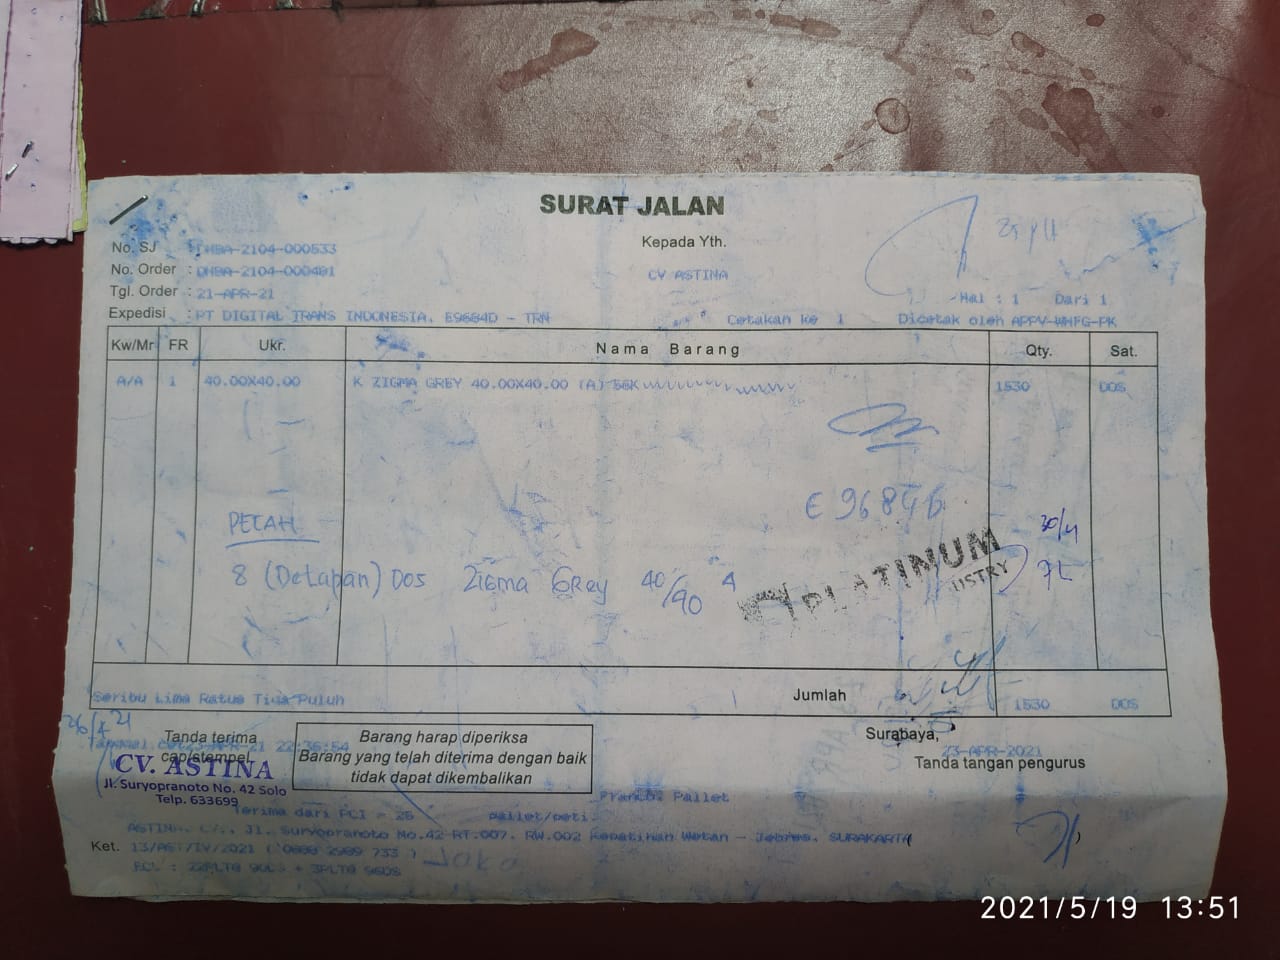 SURAT JALAN
No. SJ : DHBA-2104-000533
No. Order : DHBA-2104-000481
Tgl. Order : 21-APR-21
Expedisi : PT DIGITAL TRANS INDONESIA. E9684D - TRN
Kepada Yth.
CV ASTINA
Hal : 1 Dari 1
Cetakan ke 1
Dicetak oleh APPV-WHFG-PK
Kw/Mr FR Ukr. Nama Barang Qty. Sat.
A/A 1 40.00X40.00 K ZIGMA GREY 40.00X40.00 (A) 1530 DOS
PECAH
8 (Delapan) Dos Zigma Grey 40/40 A
PLATINUM
USTRY
30/4
Seribu Lima Ratus Tiga Puluh
Jumlah 1530 DOS
26/4 21
Tanda terima
cap/stempel
23-APR-21 22:36:54
CV. ASTINA
Jl. Suryopranoto No. 42 Solo
Telp. 633699
Barang harap diperiksa
Barang yang telah diterima dengan baik
tidak dapat dikembalikan
Surabaya, 23-APR-2021
Tanda tangan pengurus
Pallet
Terima dari PCI = 25 pallet/peti.
ASTINA. Jl. Suryopranoto No.42 RT.007. RW.002 Kepatihan Wetan - Jebres. SURAKARTA
Ket. 13/AST/IV/2021
Joko
2021/5/19 13:51